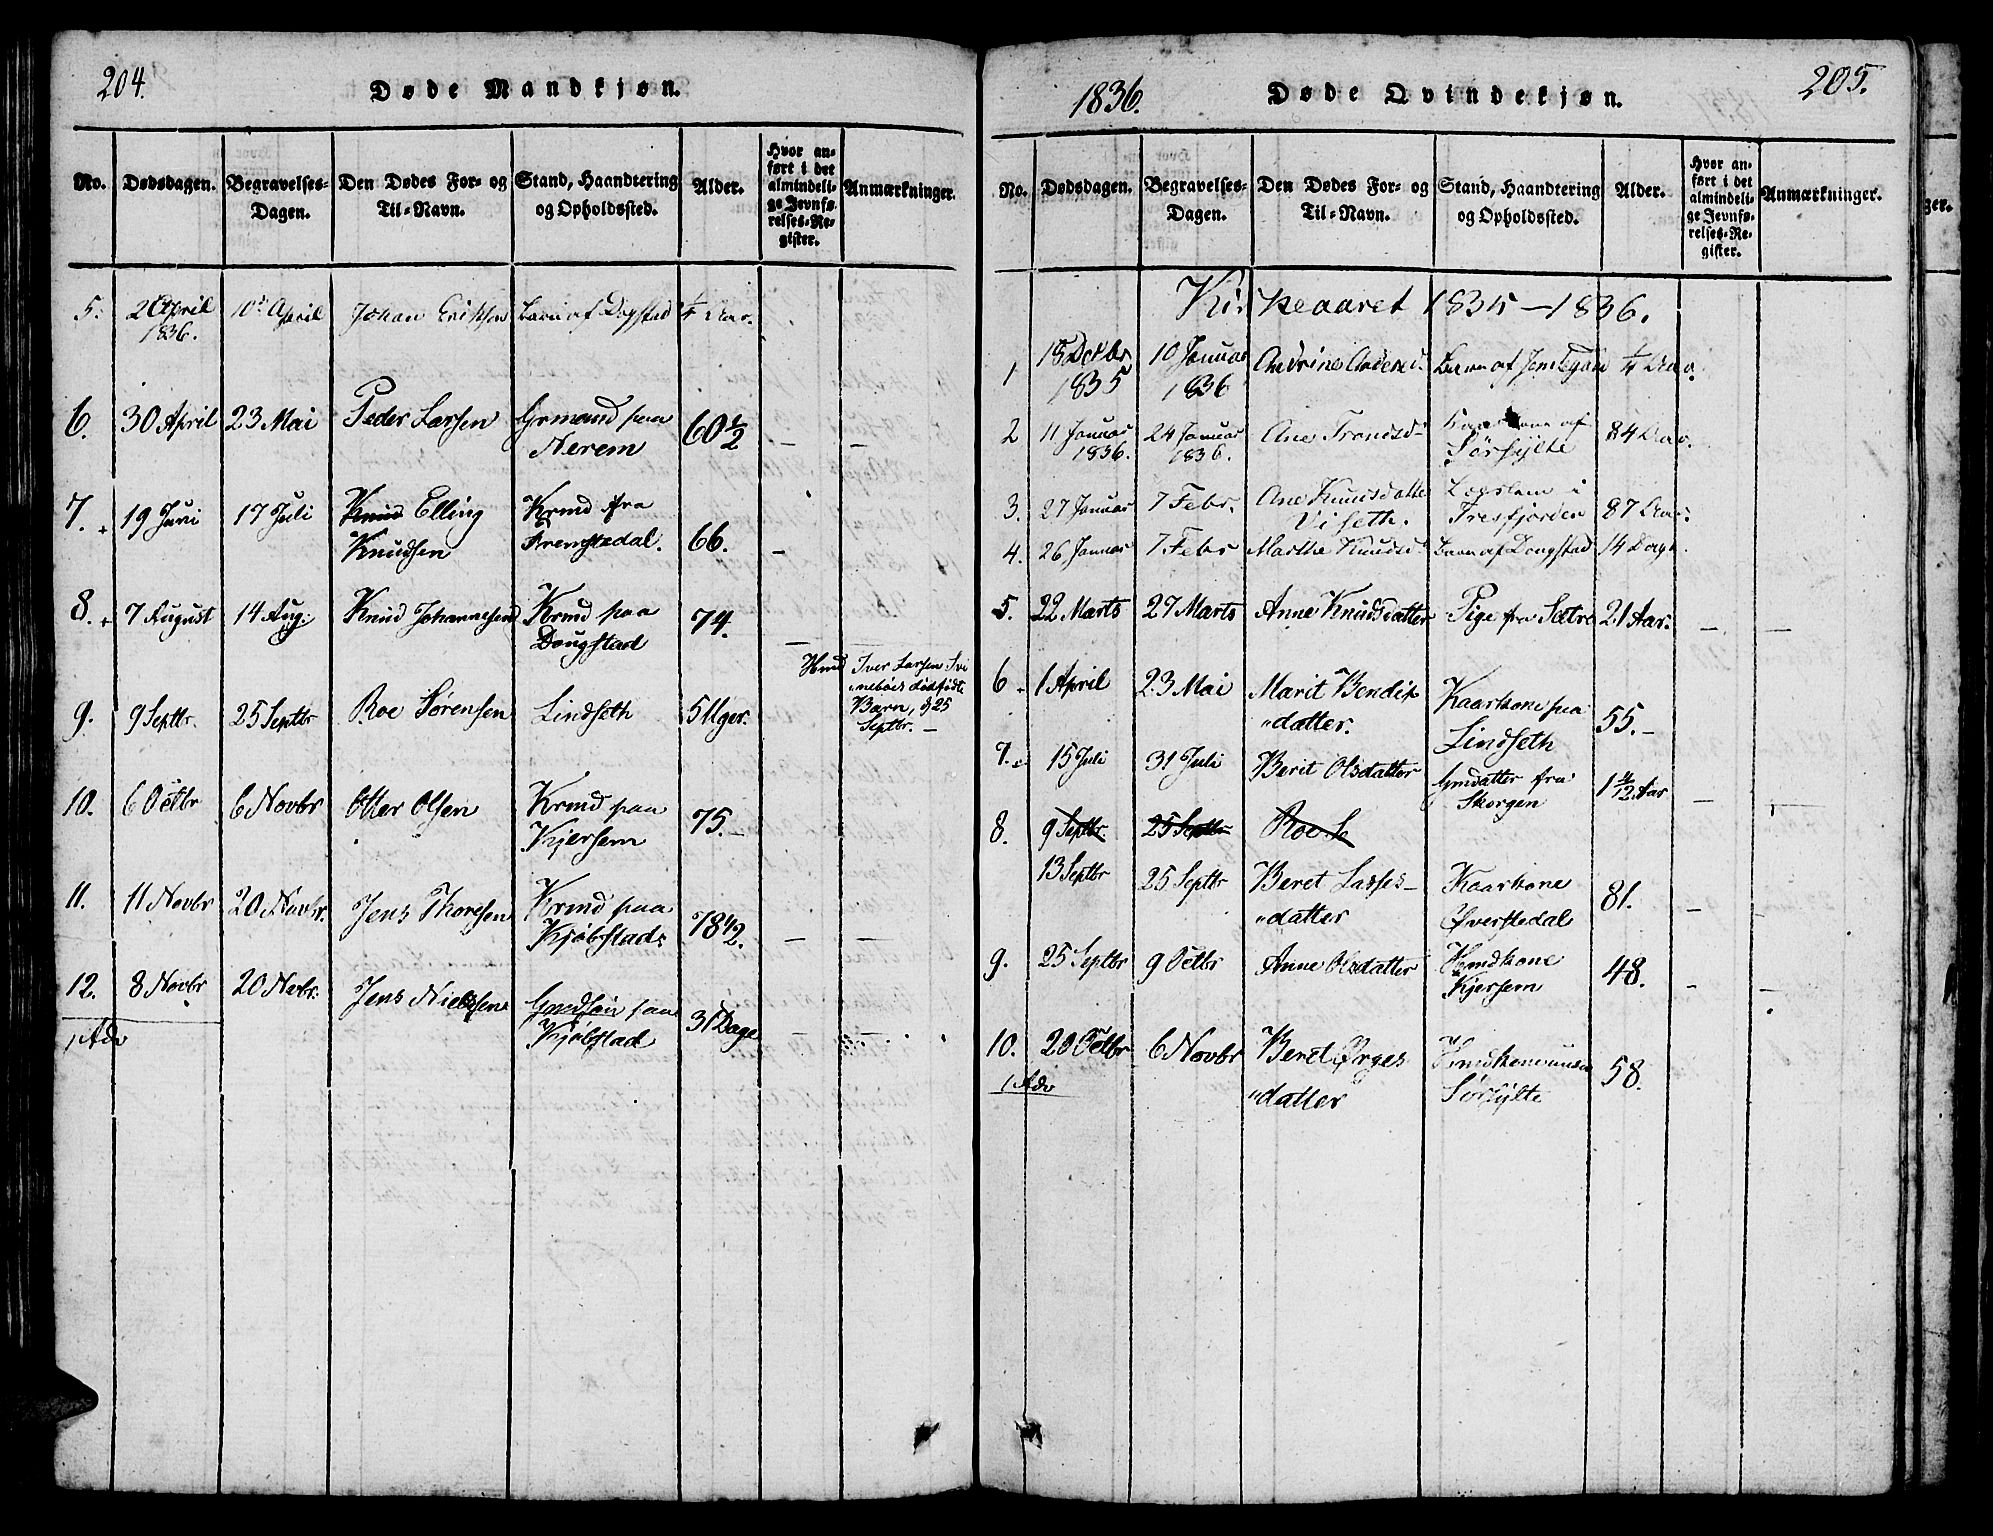 204.
Døde Mandkjøn.
No. Dødsdagen. Begravelses-Dagen. Den Dødes For- og Til-Navn. Stand, Haandtering og Opholdssted. Alder. Hvor anført i det almindelige Jevnførelses-Register. Anmærkninger.
5. 2 April 10 April Johan Barn af Dogstad ¼ Aar.
1836.
6. 30 April 23 Mai Peder Larsen Grmand paa 60½
Nerem
7. 19 Juni 17 Juli Knud Elling Krmd fra 66.
Knudsen Fremstedal.
8. 7 August 14 Aug. Knud Johannesen Krmd paa 74.
Dougstad
Hmd Iver Larsen Svi
nebøes dødfødte
Barn, d 25
Septbr. —
9. 9 Septbr. 25 Septbr Roe Sørensen Lindseth 5 Uger.
10. 6 Octbr 6 Novbr Otter Olsen Krmd paa 75. —
Kjersem
11. 11 Novbr 20 Novbr. Jens Thoresen Krmd paa 78½.
Kjøbstad
12. 8 Novbr 20 Novbr. Jens Nielssen Gmdsøn paa 31 Dage
Kjøbstad
1 Adv
1836.
Døde Qvindekjøn.
205.
No. Dødsdagen. Begravelses-Dagen. Den Dødes For- og Til-Navn. Stand, Haandtering og Opholdssted. Alder. Hvor anført i det almindelige Jevnførelses-Register. Anmærkninger.
Kirkeaaret 1835 — 1836.
1 10 Januar Andrine Andersd. Barn af ¼ Aar.
1835 1836
2 11 Januar 24 Januar Ane Trondsd. af 84 Aar.
1836. 1836. Sørsylte
3. 27 Januar 7 Febr. Ane Knudsdatter Lægslem i 87 Aar.
Viseth. Tresfjorden
4. 26 Januar 7 Febr Marthe Knudsd. Barn af Dougstad 14 Dage.
5. 22 Marts 27 Marts Anne Knudsdatter Pige fra Sætre 21 Aar.
6 1 April 23 Mai Marit Bendix Kaarkone paa 55. —
"datter. Lindseth
7. 15 Juli 31 Juli Berit Olsdatter Gmdatter fra 1 4/12 Aar
Skorgen
8. 9 Septbr. 25 Septbr Roe S
13 Septbr 25 Septbr Beret Lasses- Kaarkone 81.
"datter Øverstedal
9. 25 Septbr 9 Octbr Anne Olsdatter Hmdkone 48.
Kjersem
10. 20 Octbr 6 Novbr Beret Ørges Hmdkone under 58.
1 Adv "datter Sørsylte